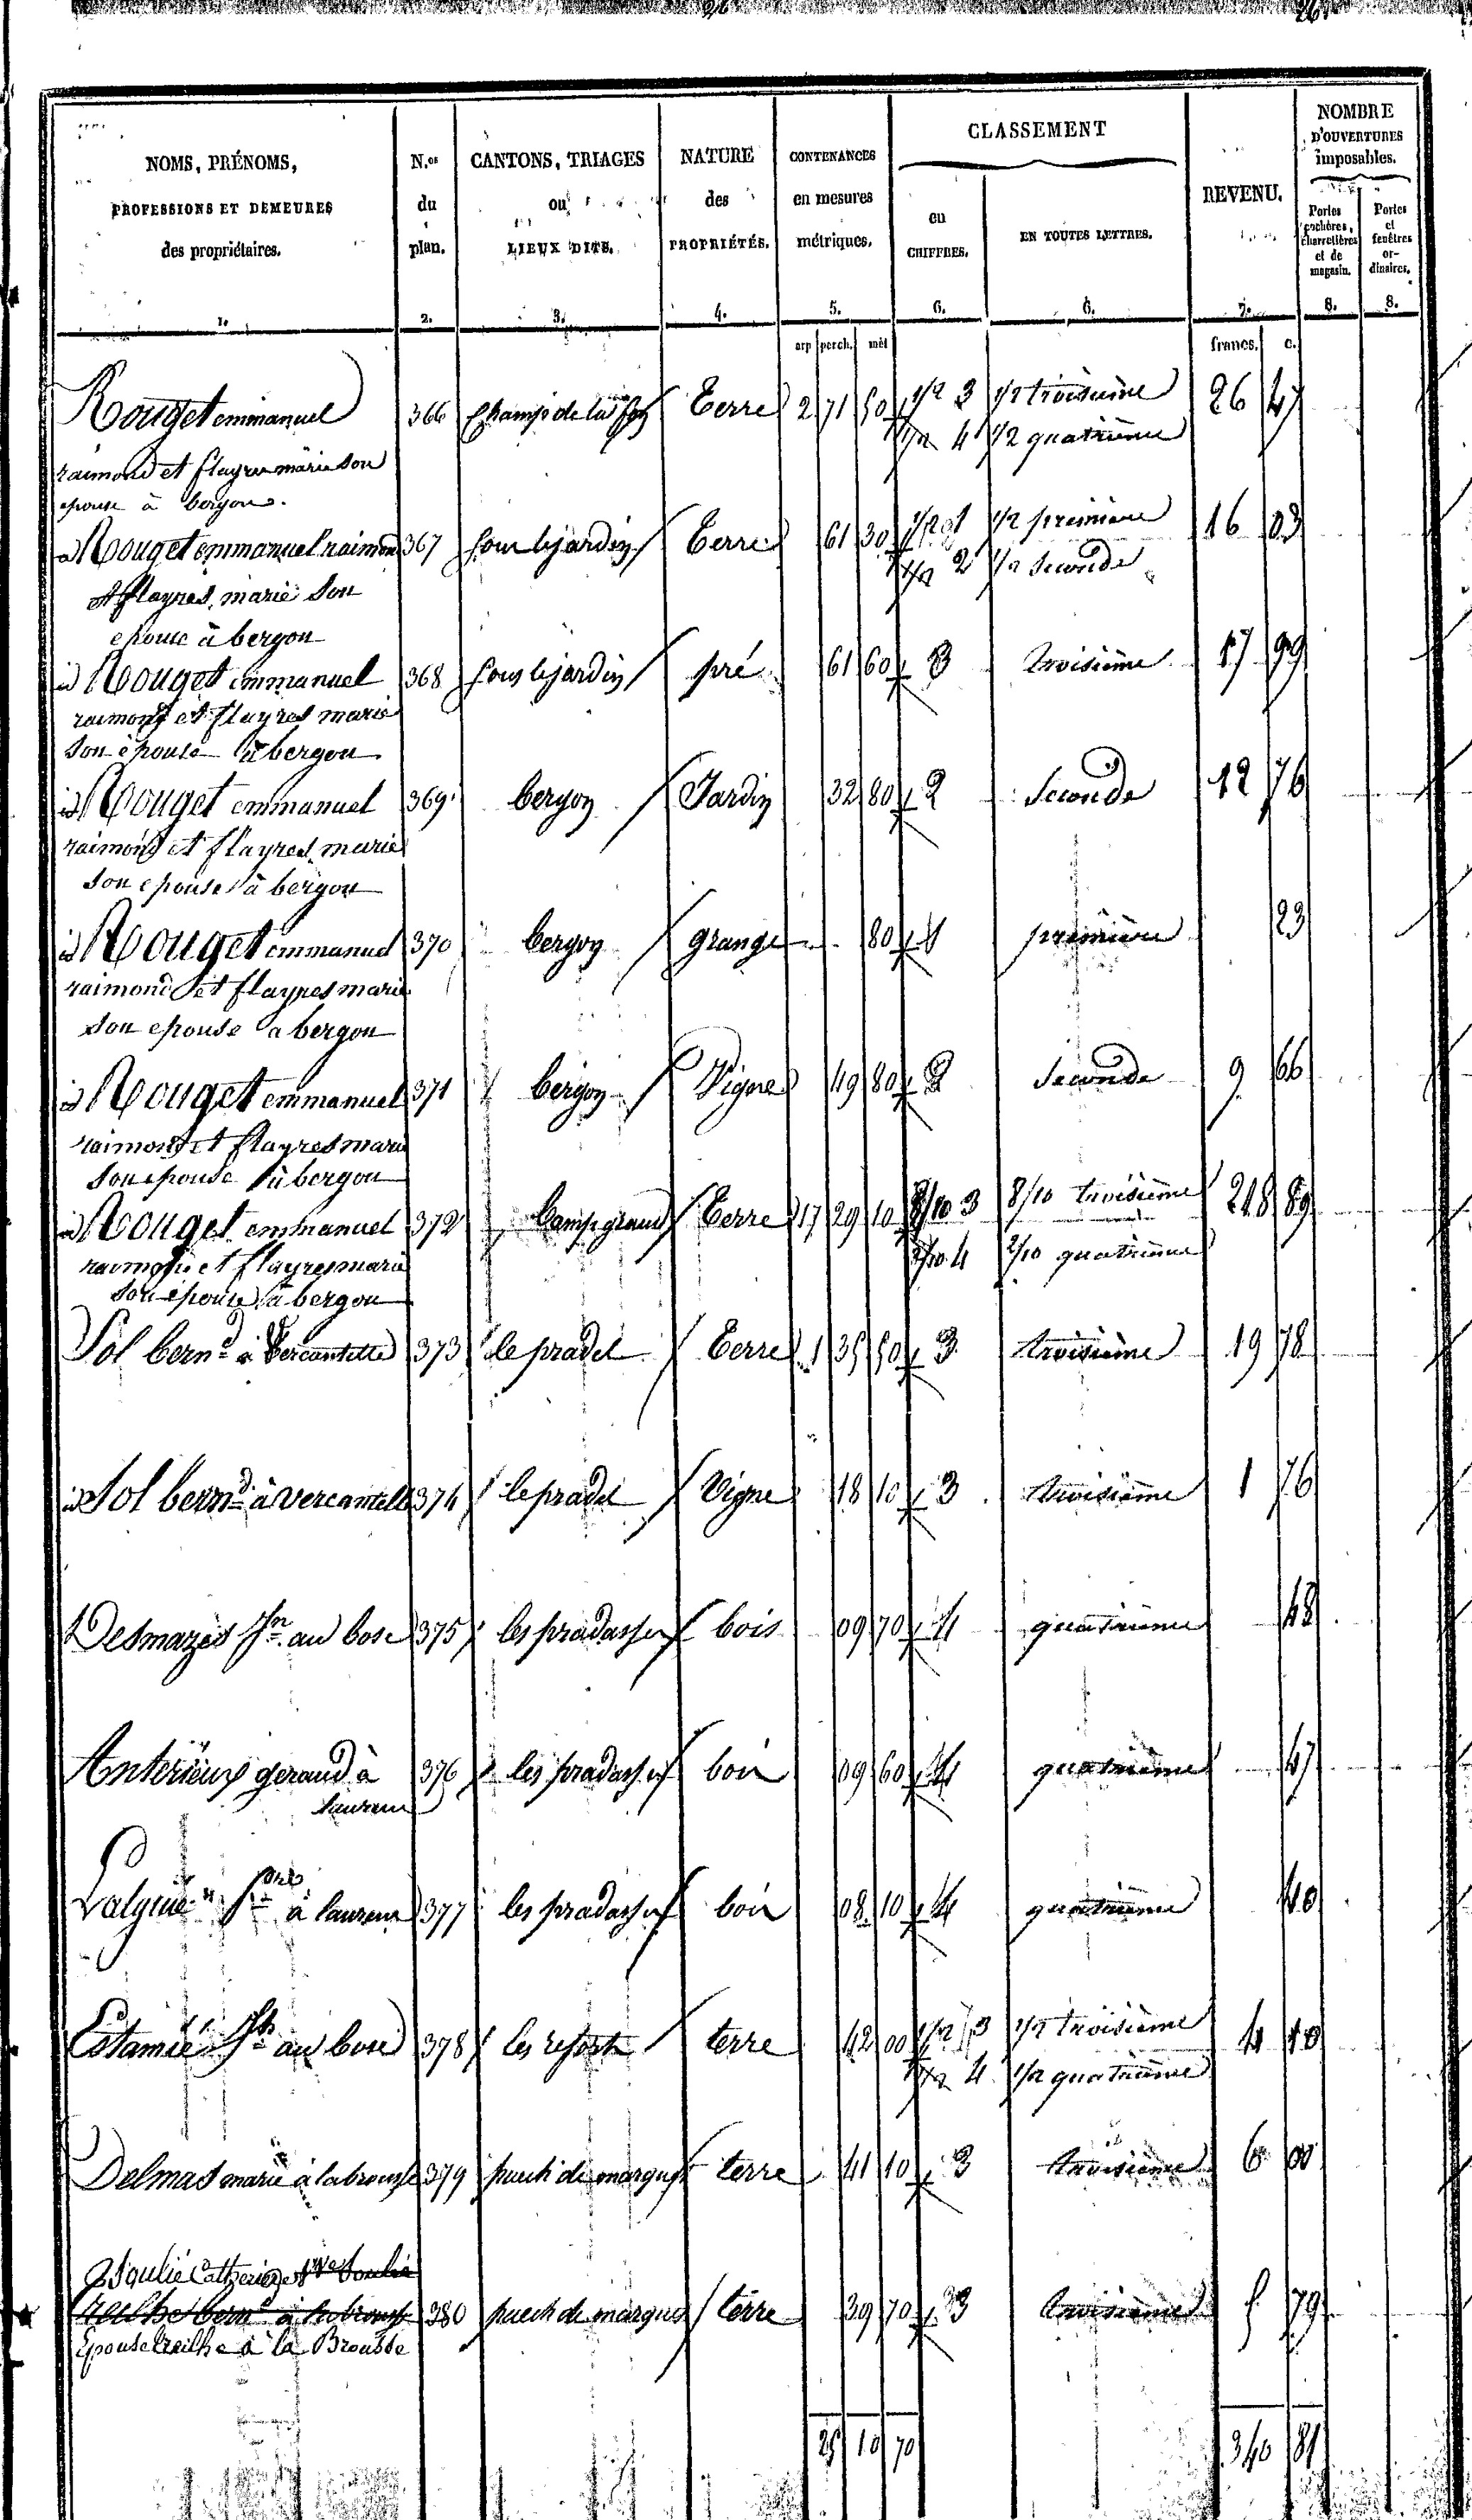 26
26.
NOMS, PRÉNOMS, PROFESSIONS ET DEMEURES des propriétaires. N.os du plan. CANTONS, TRIAGES ou LIEUX DITS. NATURE des PROPRIÉTÉS. CONTENANCES en mesures métriques. CLASSEMENT en CHIFFRES. EN TOUTES LETTRES. REVENU. NOMBRE D'OUVERTURES imposables. Portes cochères, charretières et de magasin. Portes et fenêtres ordinaires.
1. 2. 3. 4. 5. 6. 6. 7. 8. 8.
arp perch. mèt francs. c.
Rouget emmanuel 366 Champ de la Terre 2 71 50 1/2 3 1/2 troisième 26 47
1/2 4 1/2 quatrième
raimond et flayres marie son
epouse à bergon.
id Rouget emmanuel raimond 367 sous le jardin Terre 61 30 1/2 1 1/2 première 16 03
1/2 2 1/2 seconde
et flayres marie son
epouse à bergon
id Rouget emmanuel 368 sous le jardin pré 61 60 3 troisième 17 99
raimond et flayres marie
son epouse à bergon
id Rouget emmanuel 369 bergon Jardin 32 80 2 Seconde 12 76
raimond et flayres marie
son epouse à bergon
id Rouget emmanuel 370 bergon grange 80 1 première 23
raimond et flayres marie
son epouse à bergon
id Rouget emmanuel 371 bergon Vigne 49 80 2 Seconde 9 66
raimond et flayres marie
son epouse à bergon
id Rouget emmanuel 372 Camp grand Terre 17 29 10 8/10 3 8/10 troisième 218 89
2/10 4 2/10 quatrième
raimond et flayres marie
son epouse à bergon
Sol bern.d à Vercantelle 373 le pradel Terre 1 35 50 3 troisième 19 78
id Sol bern.d à vercantelle 374 le pradel Vigne 18 10 3 troisième 1 76
Delmazes Jn. au bosc 375 les pradasses bois 09 70 4 quatrième 48
Anterieux geraud à 376 les pradasses bois 09 60 4 quatrième 47
laurens
à laurens 377 les pradasses bois 08 10 4 quatrième 40
Estamié Jh au bosc 378 les reforts terre 42 00 1/2 3 1/2 troisième 4 10
1/2 4 1/2 quatrième
Delmas marie à labrousse 379 puech de margues terre 41 10 3 troisième 6 00
Soulié Catherine
380 puech de margues terre 39 70 3 troisième 5 79
Epouse treilhe à la Brousse
25 10 70 340 81